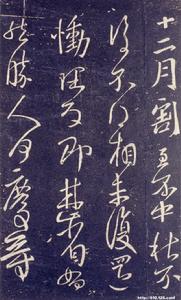 十二月割至不中秋不
復不得相未復還
慟理為即甚省如何
然勝人何慶等